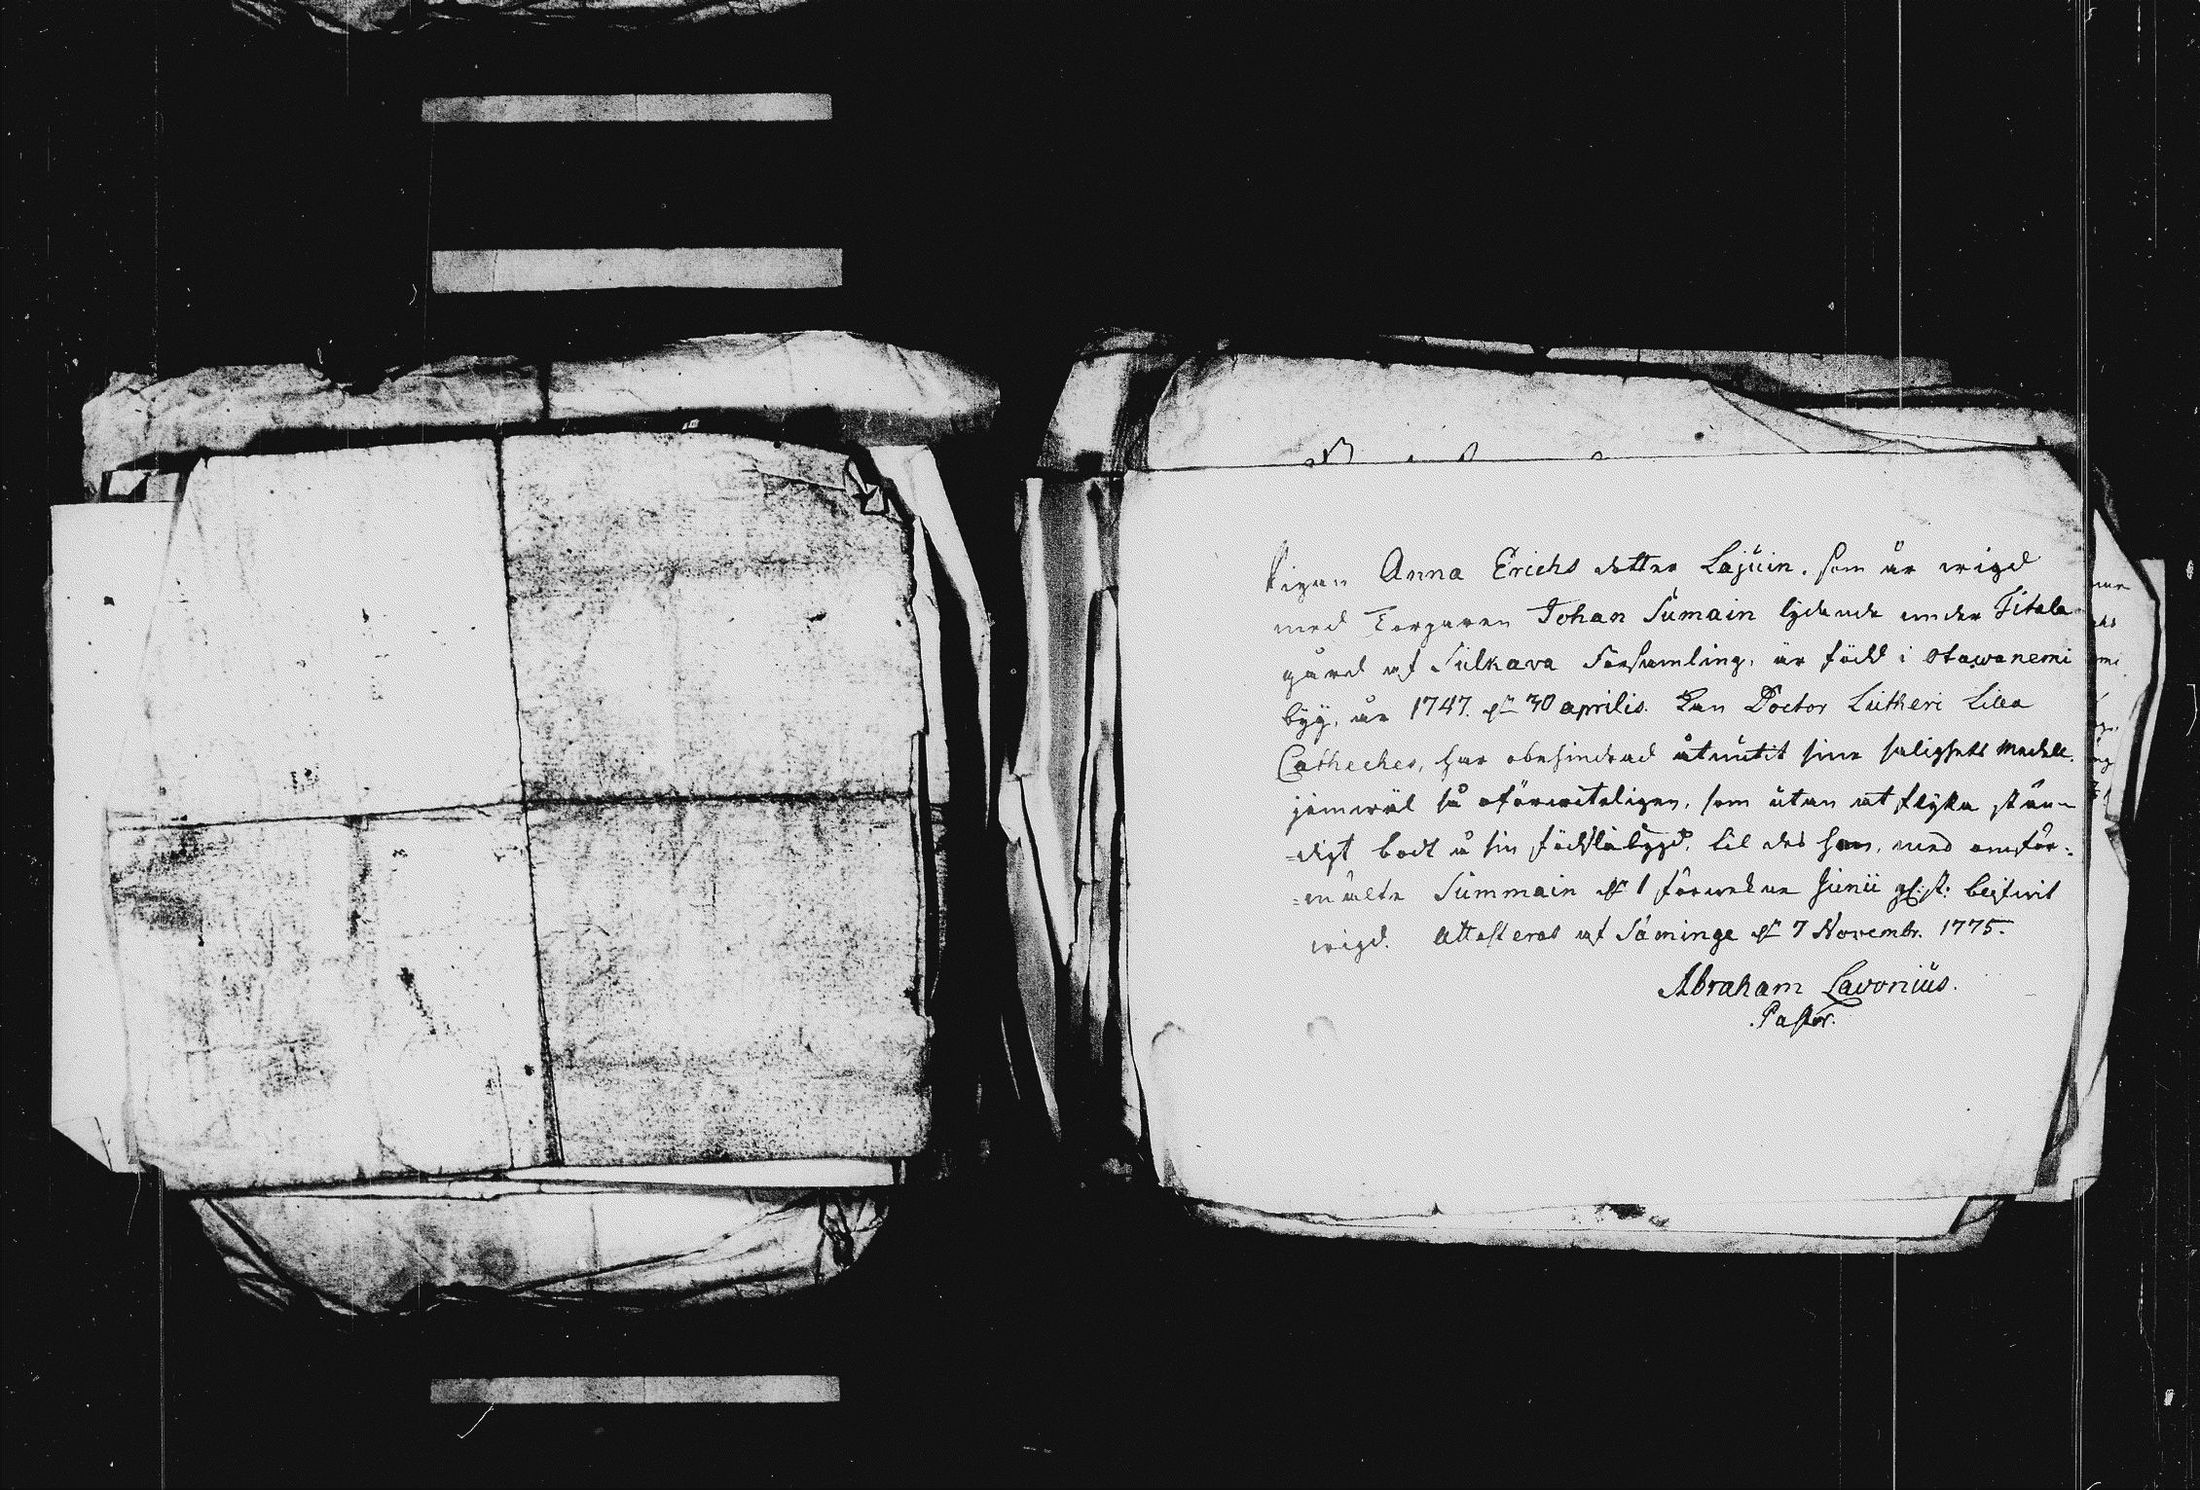 Pigan Anna Erichs dotter Lajuin. som är wigd
med Torparen Johan Sumain lydande under Titala
gård af Sulkava Församling, är född i Otawanemi
byy, år 1747. den 30 aprilis. Kan Doctor Lutheri Lilla
Catheches, har obehindrad åtniutit sine salighets medell.
jämwäl så oförwiteligen, som utan at flytta stän-
-digt bodt å sin födslobygd, til des hon, med omför-
-mälte Summain den 1 förwekne Junii
wigd. Attesteras af Säminge den 7 Novembr. 1775.
Abraham Lavonius.
Pastor.